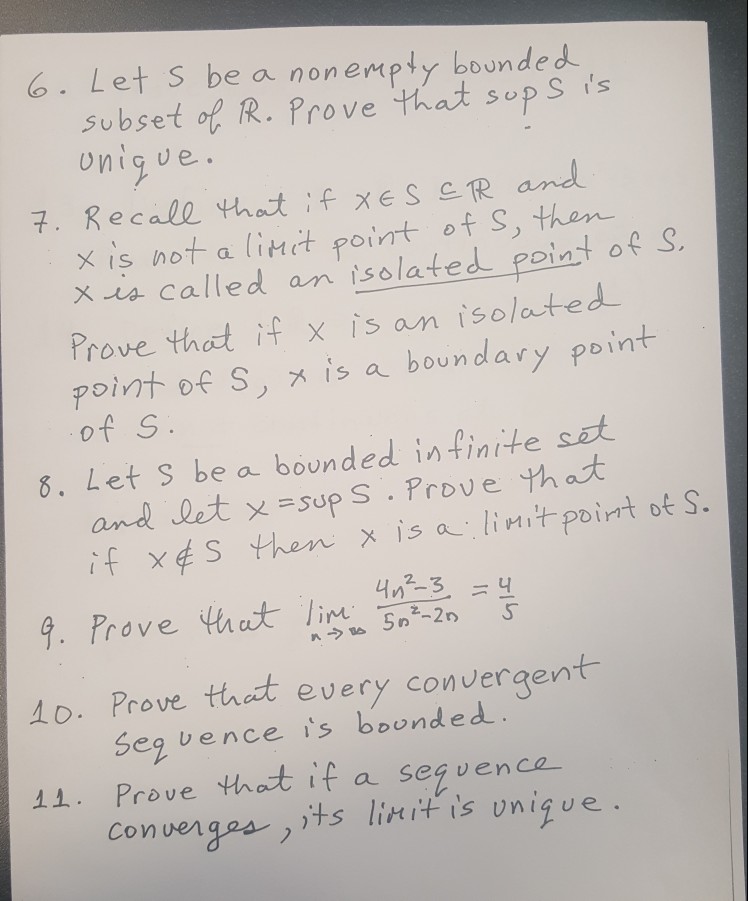 6. Let S be a nonempty bounded
subset of ℝ. Prove that sup S is
unique.
7. Recall that if x ∈ S ⊆ ℝ and
x is not a limit point of S, then
x is called an isolated point of S.
Prove that if x is an isolated
point of S, x is a boundary point
of S.
8. Let S be a bounded infinite set
and let x = sup S. Prove that
if x ∉ S then x is a limit point of S.
9. Prove that lim n→∞ (4n²-3)/(5n²-2n) = 4/5
10. Prove that every convergent
sequence is bounded.
11. Prove that if a sequence
converges, its limit is unique.